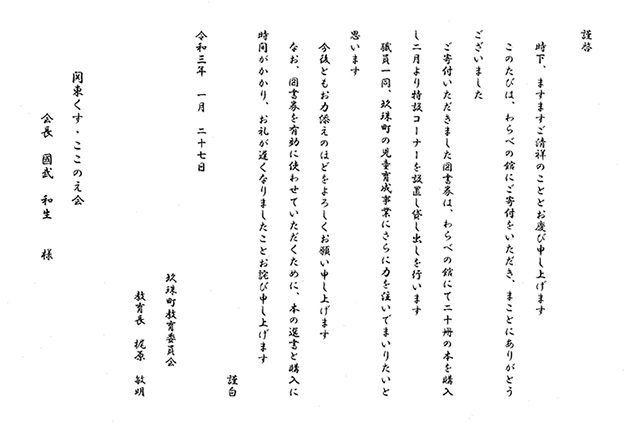 謹啓
時下、ますますご清祥のこととお慶び申し上げます
このたびは、わらべの館にご寄付をいただき、まことにありがとう
ございました
ご寄付いただきました図書券は、わらべの館にて二十冊の本を購入
し二月より特設コーナーを設置し貸し出しを行います
職員一同、玖珠町の児童育成事業にさらに力を注いでまいりたいと
思います
今後ともお力添えのほどをよろしくお願い申し上げます
なお、図書券を有効に使わせていただくために、本の選書と購入に
時間がかかり、お礼が遅くなりましたことお詫び申し上げます
謹白
令和三年 一月 二十七日
玖珠町教育委員会
教育長 梶原 敏明
関東くす・ここのえ会
会長 國武 和生 様